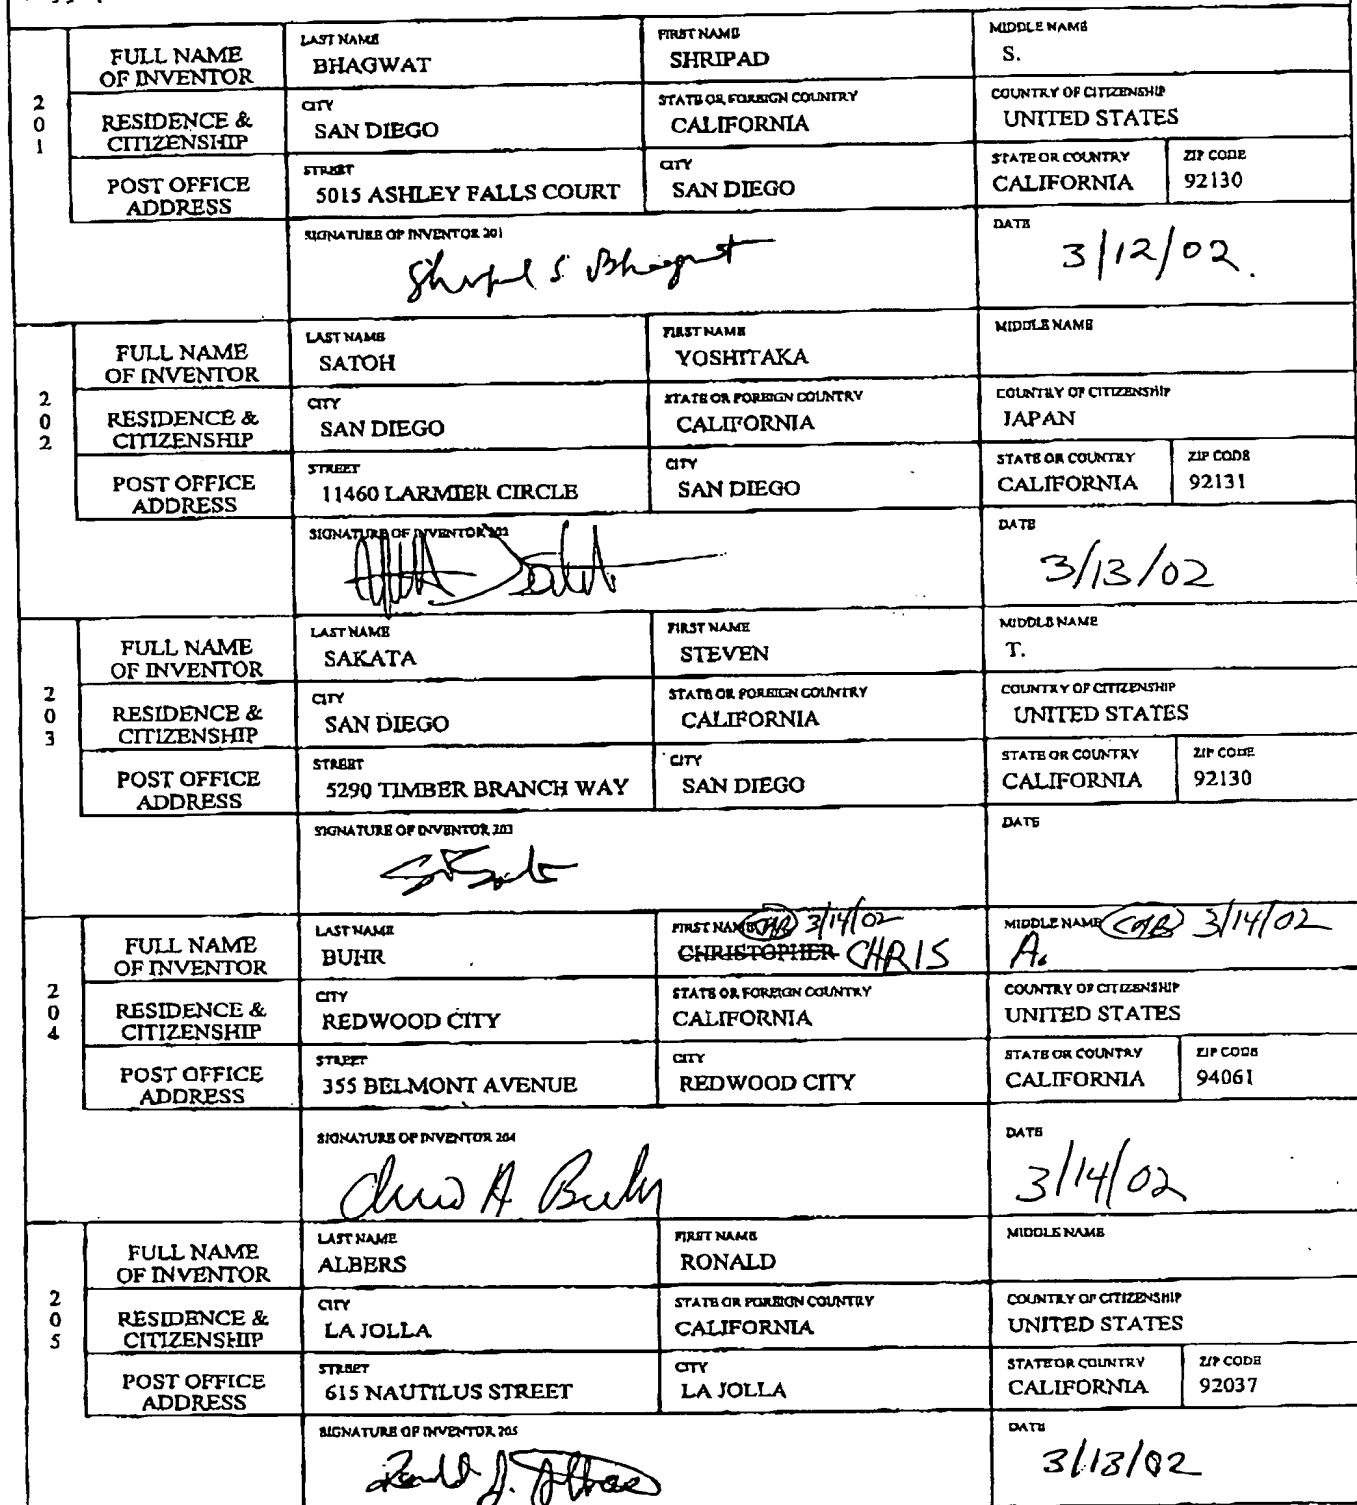 201
FULL NAME OF INVENTOR
LAST NAME BHAGWAT
FIRST NAME SHRIPAD
MIDDLE NAME S.
RESIDENCE & CITIZENSHIP
CITY SAN DIEGO
STATE OR FOREIGN COUNTRY CALIFORNIA
COUNTRY OF CITIZENSHIP UNITED STATES
POST OFFICE ADDRESS
STREET 5015 ASHLEY FALLS COURT
CITY SAN DIEGO
STATE OR COUNTRY CALIFORNIA
ZIP CODE 92130
SIGNATURE OF INVENTOR 201
Shripad S. Bhagwat
DATE 3/12/02.
202
FULL NAME OF INVENTOR
LAST NAME SATOH
FIRST NAME YOSHITAKA
MIDDLE NAME
RESIDENCE & CITIZENSHIP
CITY SAN DIEGO
STATE OR FOREIGN COUNTRY CALIFORNIA
COUNTRY OF CITIZENSHIP JAPAN
POST OFFICE ADDRESS
STREET 11460 LARMIER CIRCLE
CITY SAN DIEGO
STATE OR COUNTRY CALIFORNIA
ZIP CODE 92131
SIGNATURE OF INVENTOR 202
DATE 3/13/02
203
FULL NAME OF INVENTOR
LAST NAME SAKATA
FIRST NAME STEVEN
MIDDLE NAME T.
RESIDENCE & CITIZENSHIP
CITY SAN DIEGO
STATE OR FOREIGN COUNTRY CALIFORNIA
COUNTRY OF CITIZENSHIP UNITED STATES
POST OFFICE ADDRESS
STREET 5290 TIMBER BRANCH WAY
CITY SAN DIEGO
STATE OR COUNTRY CALIFORNIA
ZIP CODE 92130
SIGNATURE OF INVENTOR 203
DATE
204
FULL NAME OF INVENTOR
LAST NAME BUHR
FIRST NAME CAB 3/14/02
CHRISTOPHER CHRIS
MIDDLE NAME CAB 3/14/02
A.
RESIDENCE & CITIZENSHIP
CITY REDWOOD CITY
STATE OR FOREIGN COUNTRY CALIFORNIA
COUNTRY OF CITIZENSHIP UNITED STATES
POST OFFICE ADDRESS
STREET 355 BELMONT AVENUE
CITY REDWOOD CITY
STATE OR COUNTRY CALIFORNIA
ZIP CODE 94061
SIGNATURE OF INVENTOR 204
Chris A. Buhr
DATE 3/14/02
205
FULL NAME OF INVENTOR
LAST NAME ALBERS
FIRST NAME RONALD
MIDDLE NAME
RESIDENCE & CITIZENSHIP
CITY LA JOLLA
STATE OR FOREIGN COUNTRY CALIFORNIA
COUNTRY OF CITIZENSHIP UNITED STATES
POST OFFICE ADDRESS
STREET 615 NAUTILUS STREET
CITY LA JOLLA
STATE OR COUNTRY CALIFORNIA
ZIP CODE 92037
SIGNATURE OF INVENTOR 205
Ronald J. Albers
DATE 3/13/02